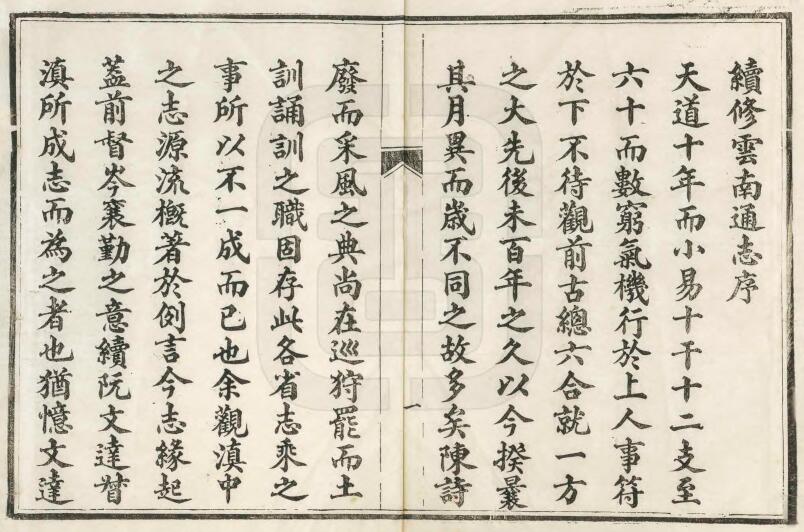 續修雲南通志序
天道十年而小易十干十二支至
六十而數窮氣機行於上人事符
於下不待觀前古總六合就一方
之大先後未百年之久以今揆曩
其月異而歲不同之故多矣陳詩
一
廢而采風之典尚在巡狩罷而土
訓誦訓之職固存此各省志乘之
事所以不一成而已也余觀滇中
之志源流概著於例言今志緣起
葢前督岑襄勤之意續阮文達督
滇所成志而為之者也猶憶文達